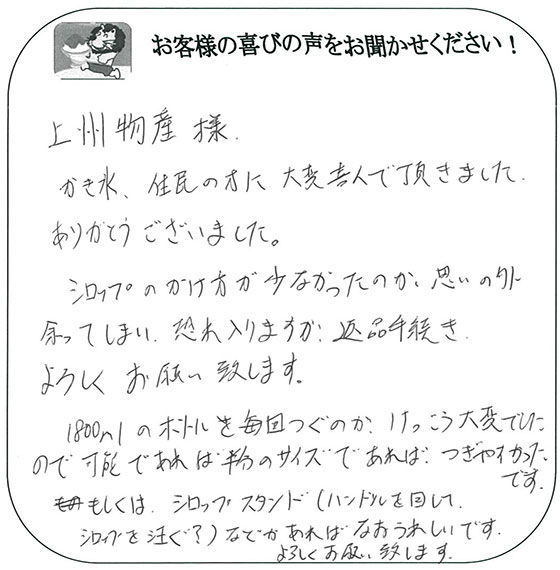 お客様の喜びの声をお聞かせください！
上州物産様.
かき氷、住民の方に大変喜んで頂きました.
ありがとうございました。
シロップのかけ方が少なかったのか、思いの外
余ってしまい、恐れ入りますが、返品手続き
よろしくお願い致します。
1800mlのボトルを毎回つぐのが、けっこう大変でした
ので可能であれば半分のサイズであれば、つぎやすかった
です。
もしくは、シロップスタンド(ハンドルを回して、
シロップを注ぐ?)などがあればなおうれしいです.
よろしくお願い致します.